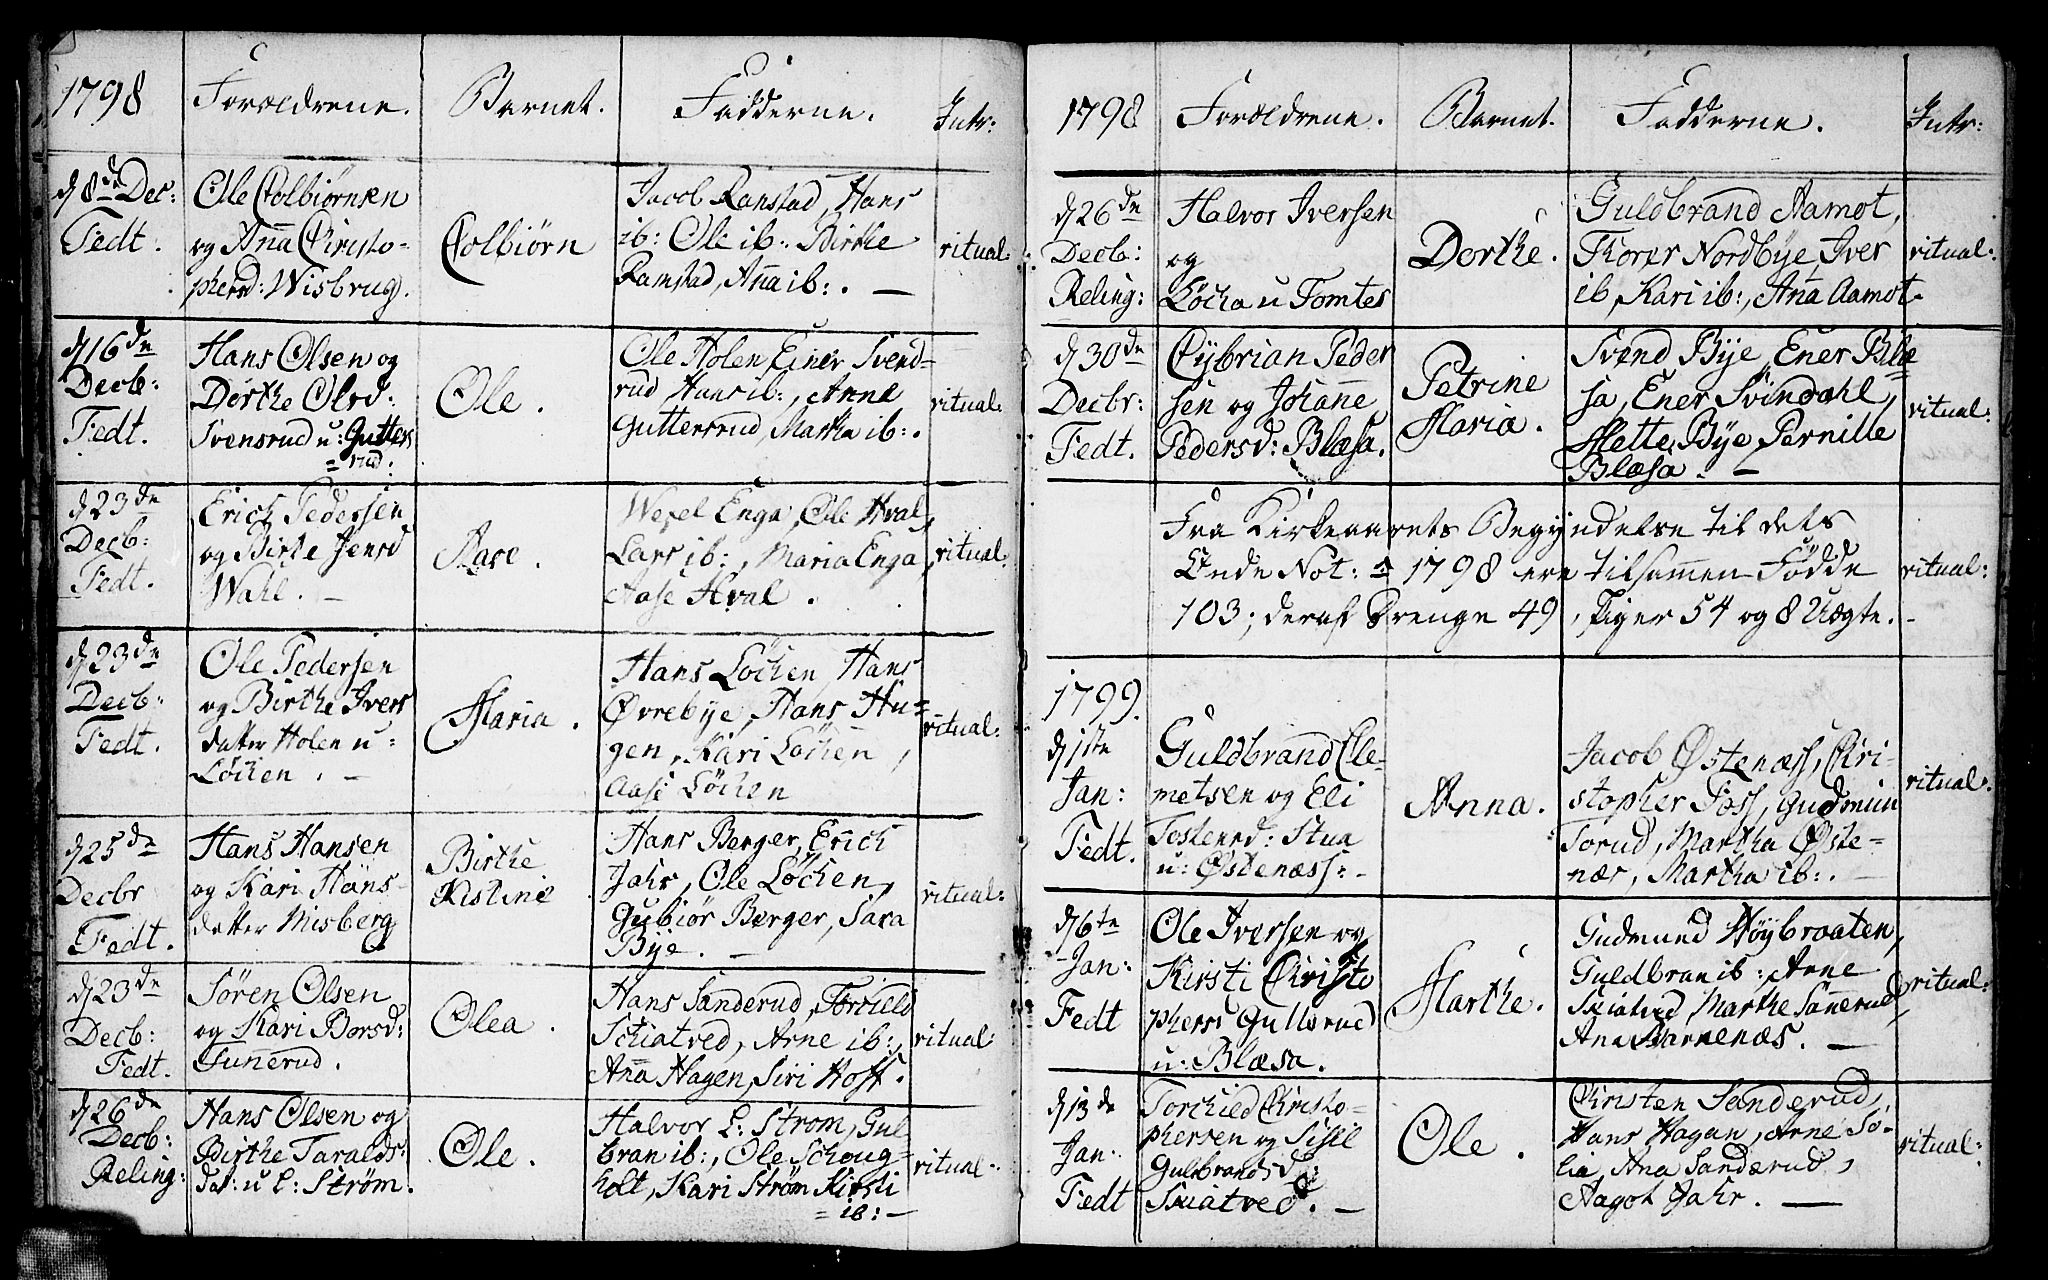 1798
Forældrene.
Barnet.
Fadderne.
Intr:
d 8de Dec:
Fedt.
Ole Colbiørnsen
og Anna Christo-
phersd: Wisbrug.
Colbiørn
Jacob Ramstad, Hans
ib: Ole ib: Birthe
Ramstad, Anna ib: . —
ritual:
d 16de
Decb:
Fedt.
Hans Olsen og
Dorthe Olsd:
Svensrud u: Gutters
= rud:
Ole.
Ole Holen, Einer Svend-
rud Hans ib:, Anne
Guttersrud, Martha ib: .
ritual:
d 23de
Decb:
Fedt.
Erich Pedersen
og Birte Jensd
Wahl. —
Aase.
Wesel Enga, Ole Hval,
Lars ib:, Maria Enga,
Aase Hval .
ritual:
d 23de
Decb:
Fedt.
Ole Pedersen
og Birthe Ivers
datter Holen u:
Løchen . —
Maria.
Hans Løchen Hans
Øvrebye, Hans Hu=
gen, Kari Løchen,
Aase Løchen
ritual:
d 25de
Decbr
Fedt.
Hans Hansen
og Kari Hans-
datter Misberg
Birthe
Kistine
Hans Berger, Erich
Jahr, Ole Løchen,
Gubiør Berger, Sara
Bye. —
ritual:
d 23de
Decb:
Fedt.
Søren Olsen
og Kari Borsd:
Gunerud.
Olea.
Hans Sanderud, Torchild
Schiatved, Arne ib:,
Anna Hagen, Siri Hoff.
ritual:
d 26de
Decb:
Reling:
Hans Olsen og
Birthe Taralds-
dat: u L: Strøm.
Ole.
Halvor L: Strøm, Gul
bran ib:, Ole Schoug-
holt, Kari Strøm Kirsti
= ib: —
ritual:
1798
Forældrene.
Barnet.
Fadderne.
Intr:
d 26de
Decb:
Reling:
Halvor Iversen
og
Løcha u Tomter
Dorthe.
Guldbrand Aamot,
Thorer Nordbye, Iver
ib, Kari ib:, Anna Aamot.
ritual:
d 30de
Decbr:
Fedt.
Cybrian Peder
sen og Johanne
Pedersd: Blæsa.
Petrine
Maria.
Svend Bye, Ener Blæ=
sa, Ener Svindahl,
Mette Bye Pernille
Blæsa. —
ritual:
Fra Kirkeaarets Begyndelse til dets
Ende Not: 1798 ere tilsammen Fødde
103; deraf Drenge 49, Piger 54 og 8 Uægte. -
ritual:
1799.
d 1ste
Jan:
Fedt.
Guldbrand Cle-
metsen og Eli
Tostensd: Stua
u: Østenæss: -
Anna.
Jacob Østenæss, Chri-
stopher Foss, Gudmun
Torud, Martha Øste-
nær, Martha ib: . —
ritual.
d 6te
Jan:
Fedt
Ole Iversen og
Kirsti Christo
phers Gullerud
u: Blæsa.
Marthe.
Gudmund Høybraaten,
Guldbran ib:, Arne
Skiatved, Marthe Sannerud,
Ana Barnenæs. —
ritual:
d 13de
Jan:
Fedt
Torchild Christo-
phersen og Sisil
Guldbrandsd:
Skiatved. —
Ole.
Christen Sanderud,
Hans Hagan, Arne Sø-
lia, Ana Sanderud,
Aagot Jahr. —
ritual: